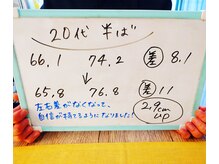 20代 半ば
66.1 74.2 差 8.1
↓
65.8 76.8 差 11
左右差がなくなって、
自信が持てるようになりました!
2.9cm
up